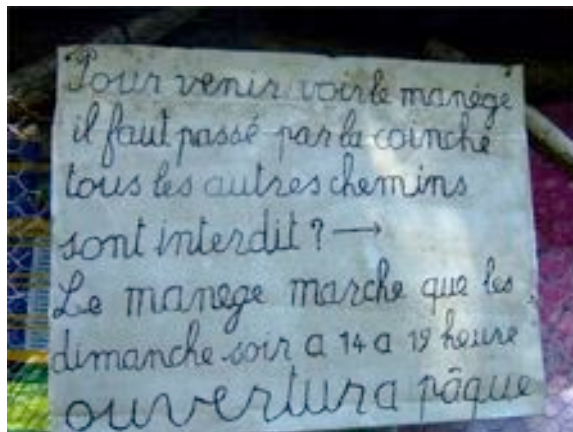 Pour venir voir le manège
il faut passé par la coinche
tous les autres chemins
sont interdit ? →
Le manege marche que les
dimanche soir a 14 a 19 heure
ouvertura pâque